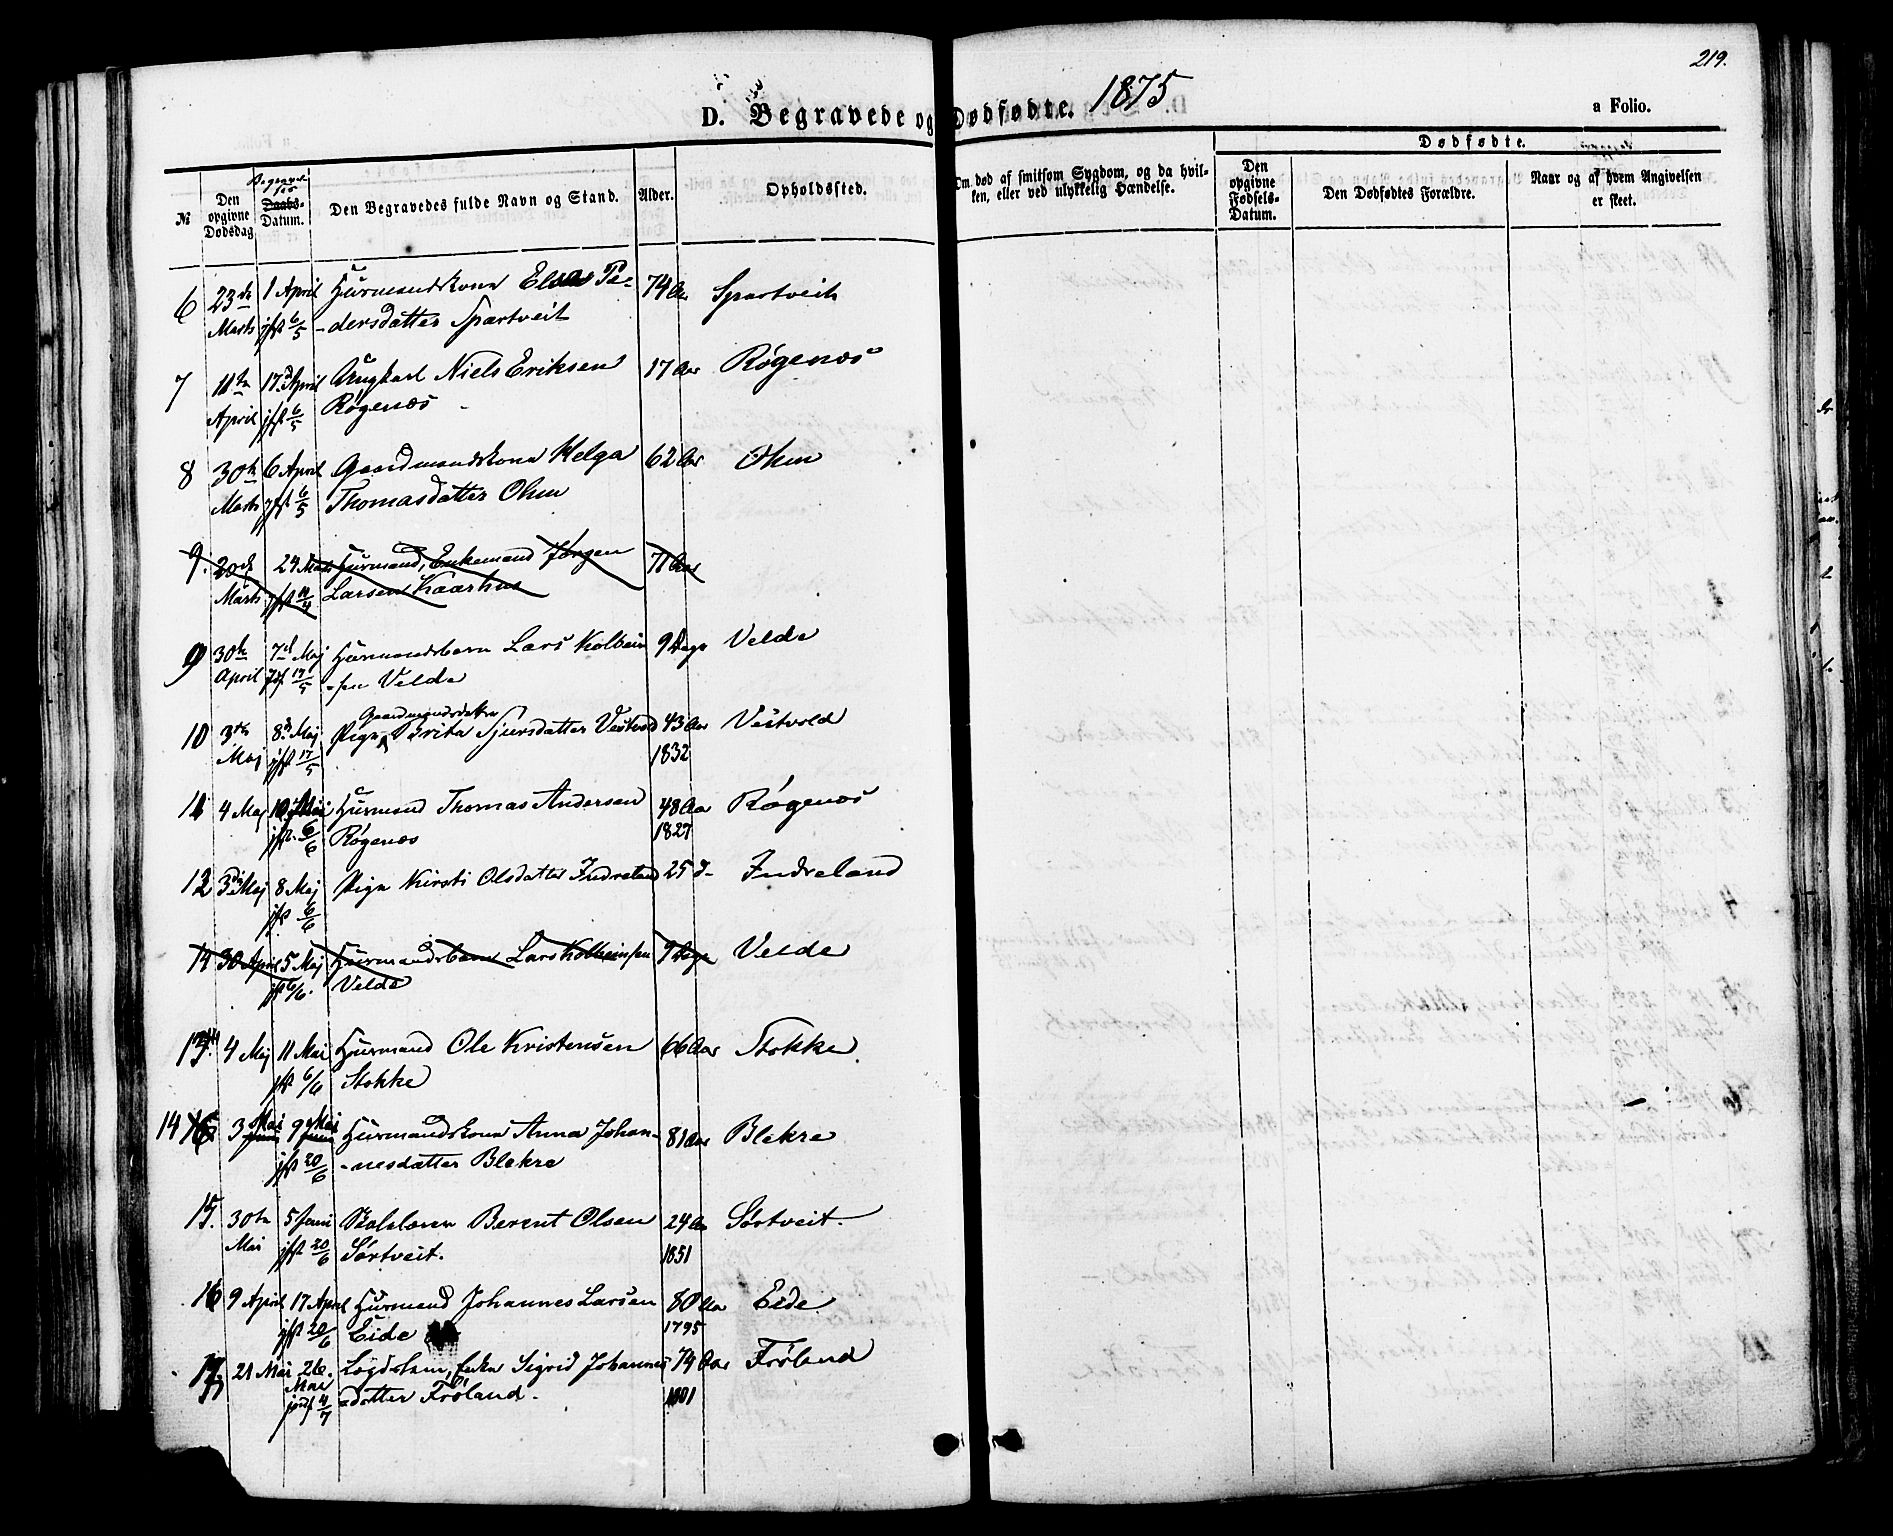 219.
D. Begravede og Dødfødte. 1875
a Folio.
Dødfødte.
№
Den opgivne Dødsdag
Begravelses Daabs-Datum.
Den Begravedes fulde Navn og Stand.
Alder.
Opholdssted.
Om død af smitsom Sygdom, og da hvilken, eller ved ulykkelig Hændelse.
Den opgivne Fødsels-Datum.
Den Dødfødtes Forældre.
Naar og af hvem Angivelsen er skeet.
6 23de 1 April Huusmandskona Elsa Pe- 74 Aar Spartveit
Marts jfst 6/5 -dersdatter Spartveit
7 11te 17de April Ungkarl Niels Eriksen 17 Aar Røgenæs
April jfst 6/5 Røgenæs
8 30te 6 April Gaardmandskona Helga 62 Aar Ohm
Marts jfst 6/5 Thomasdatter Ohm
9. 20de 24 Marts Huusmand, Enkemand Jørgen 71 Aar
Marts jfst 11/4 Larsen Kaarhus
9 30te 7de Maj Huusmandsbarn Lars Kolbein 9 Dage Velde
April jfst 17/5 -sen Velde
Gaardmandsdatter
10 3die 8de Maj Pige Brita Sjursdatter Vestvold 43 Aar Vestvold
Maj jfst 17/5 1832
11 4 Maj 10 Maj Huusmand Thomas Andersen 48 Aar Røgenæs
jfst. 6/6 Røgenæs 1827
12 3die Maj 8 Maj Pige Kirsti Olsdatter Indreland 25 d- Indreland
jfst 6/6
14 30 April 5 Maj Huusmandsbarn Lars Kolbeinsen 9 Dage Velde
jfst 6/6. Velde
13. 4 Maj 11 Mai Huusmand Ole Kristensen 66 Aar Stokke
jfst 6/6 Stokke
14 3 Mai 9 Mai Huusmandskona Anna Johan- 81 Aar Blekre
jfst 20/6 -nesdatter Blekre
15. 30te 5 Juni Berent Olsen 24 Aar Sørtveit.
Mai jfst 20/6 Sørtveit. 1851
16 9 April 17 April Huusmand Johannes Larsen 80 Aar Eide
jfst 20/6 Eide 1795
17 21 Mai 26. Enke Sigrid Johannes 74 Aar Frøland
Mai jordf 4/7 -datter Frøland. 1801